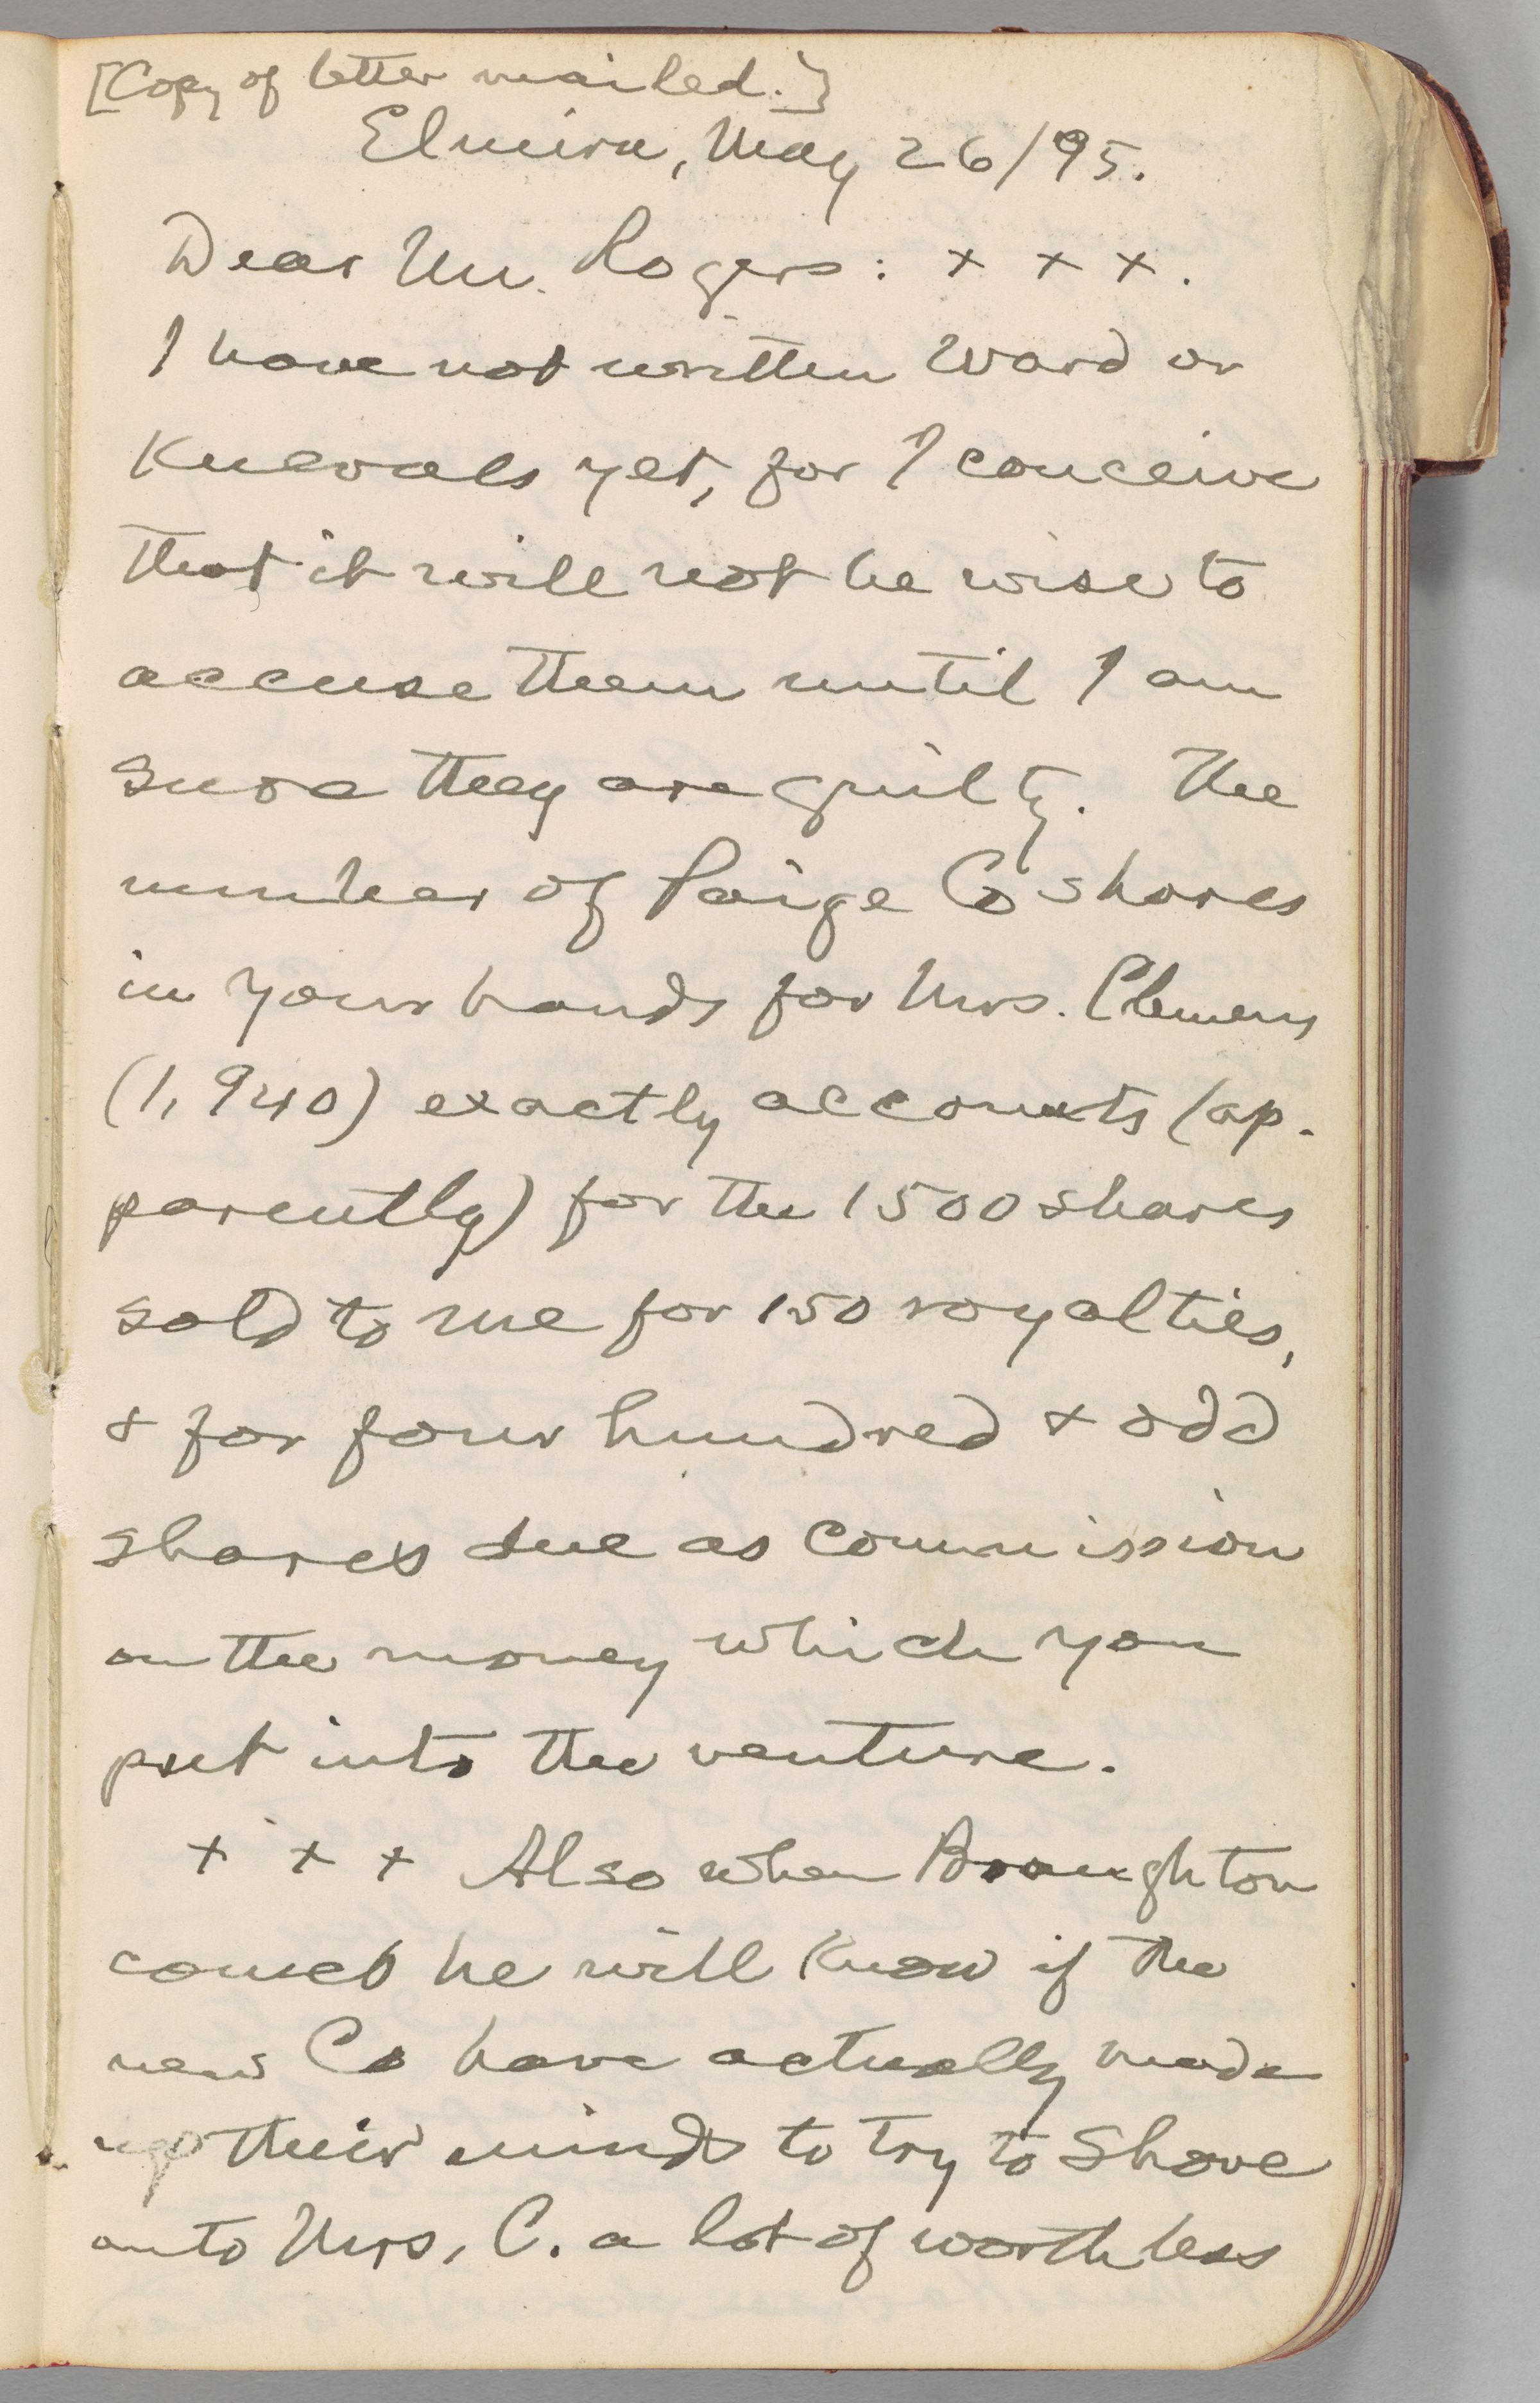 [Copy of letter mailed.]
Elmira, May 26/95.
Dear Mr. Rogers: + + +.
I have not written Ward or
Knevals yet, for I conceive
that it will not be wise to
accuse them until I am
sure they are guilty. The
number of Paige Co shares
in your hands for Mrs. Clemens
(1,940) exactly accounts (ap-
parently) for the 1500 shares
sold to me for 150 royalties,
& for four hundred & odd
shares due as commission
on the money which you
put into the venture.
+ + + Also when Broughton
comes he will know if the
new Co have actually made
up their minds to try to shove
onto Mrs. C. a lot of worthless